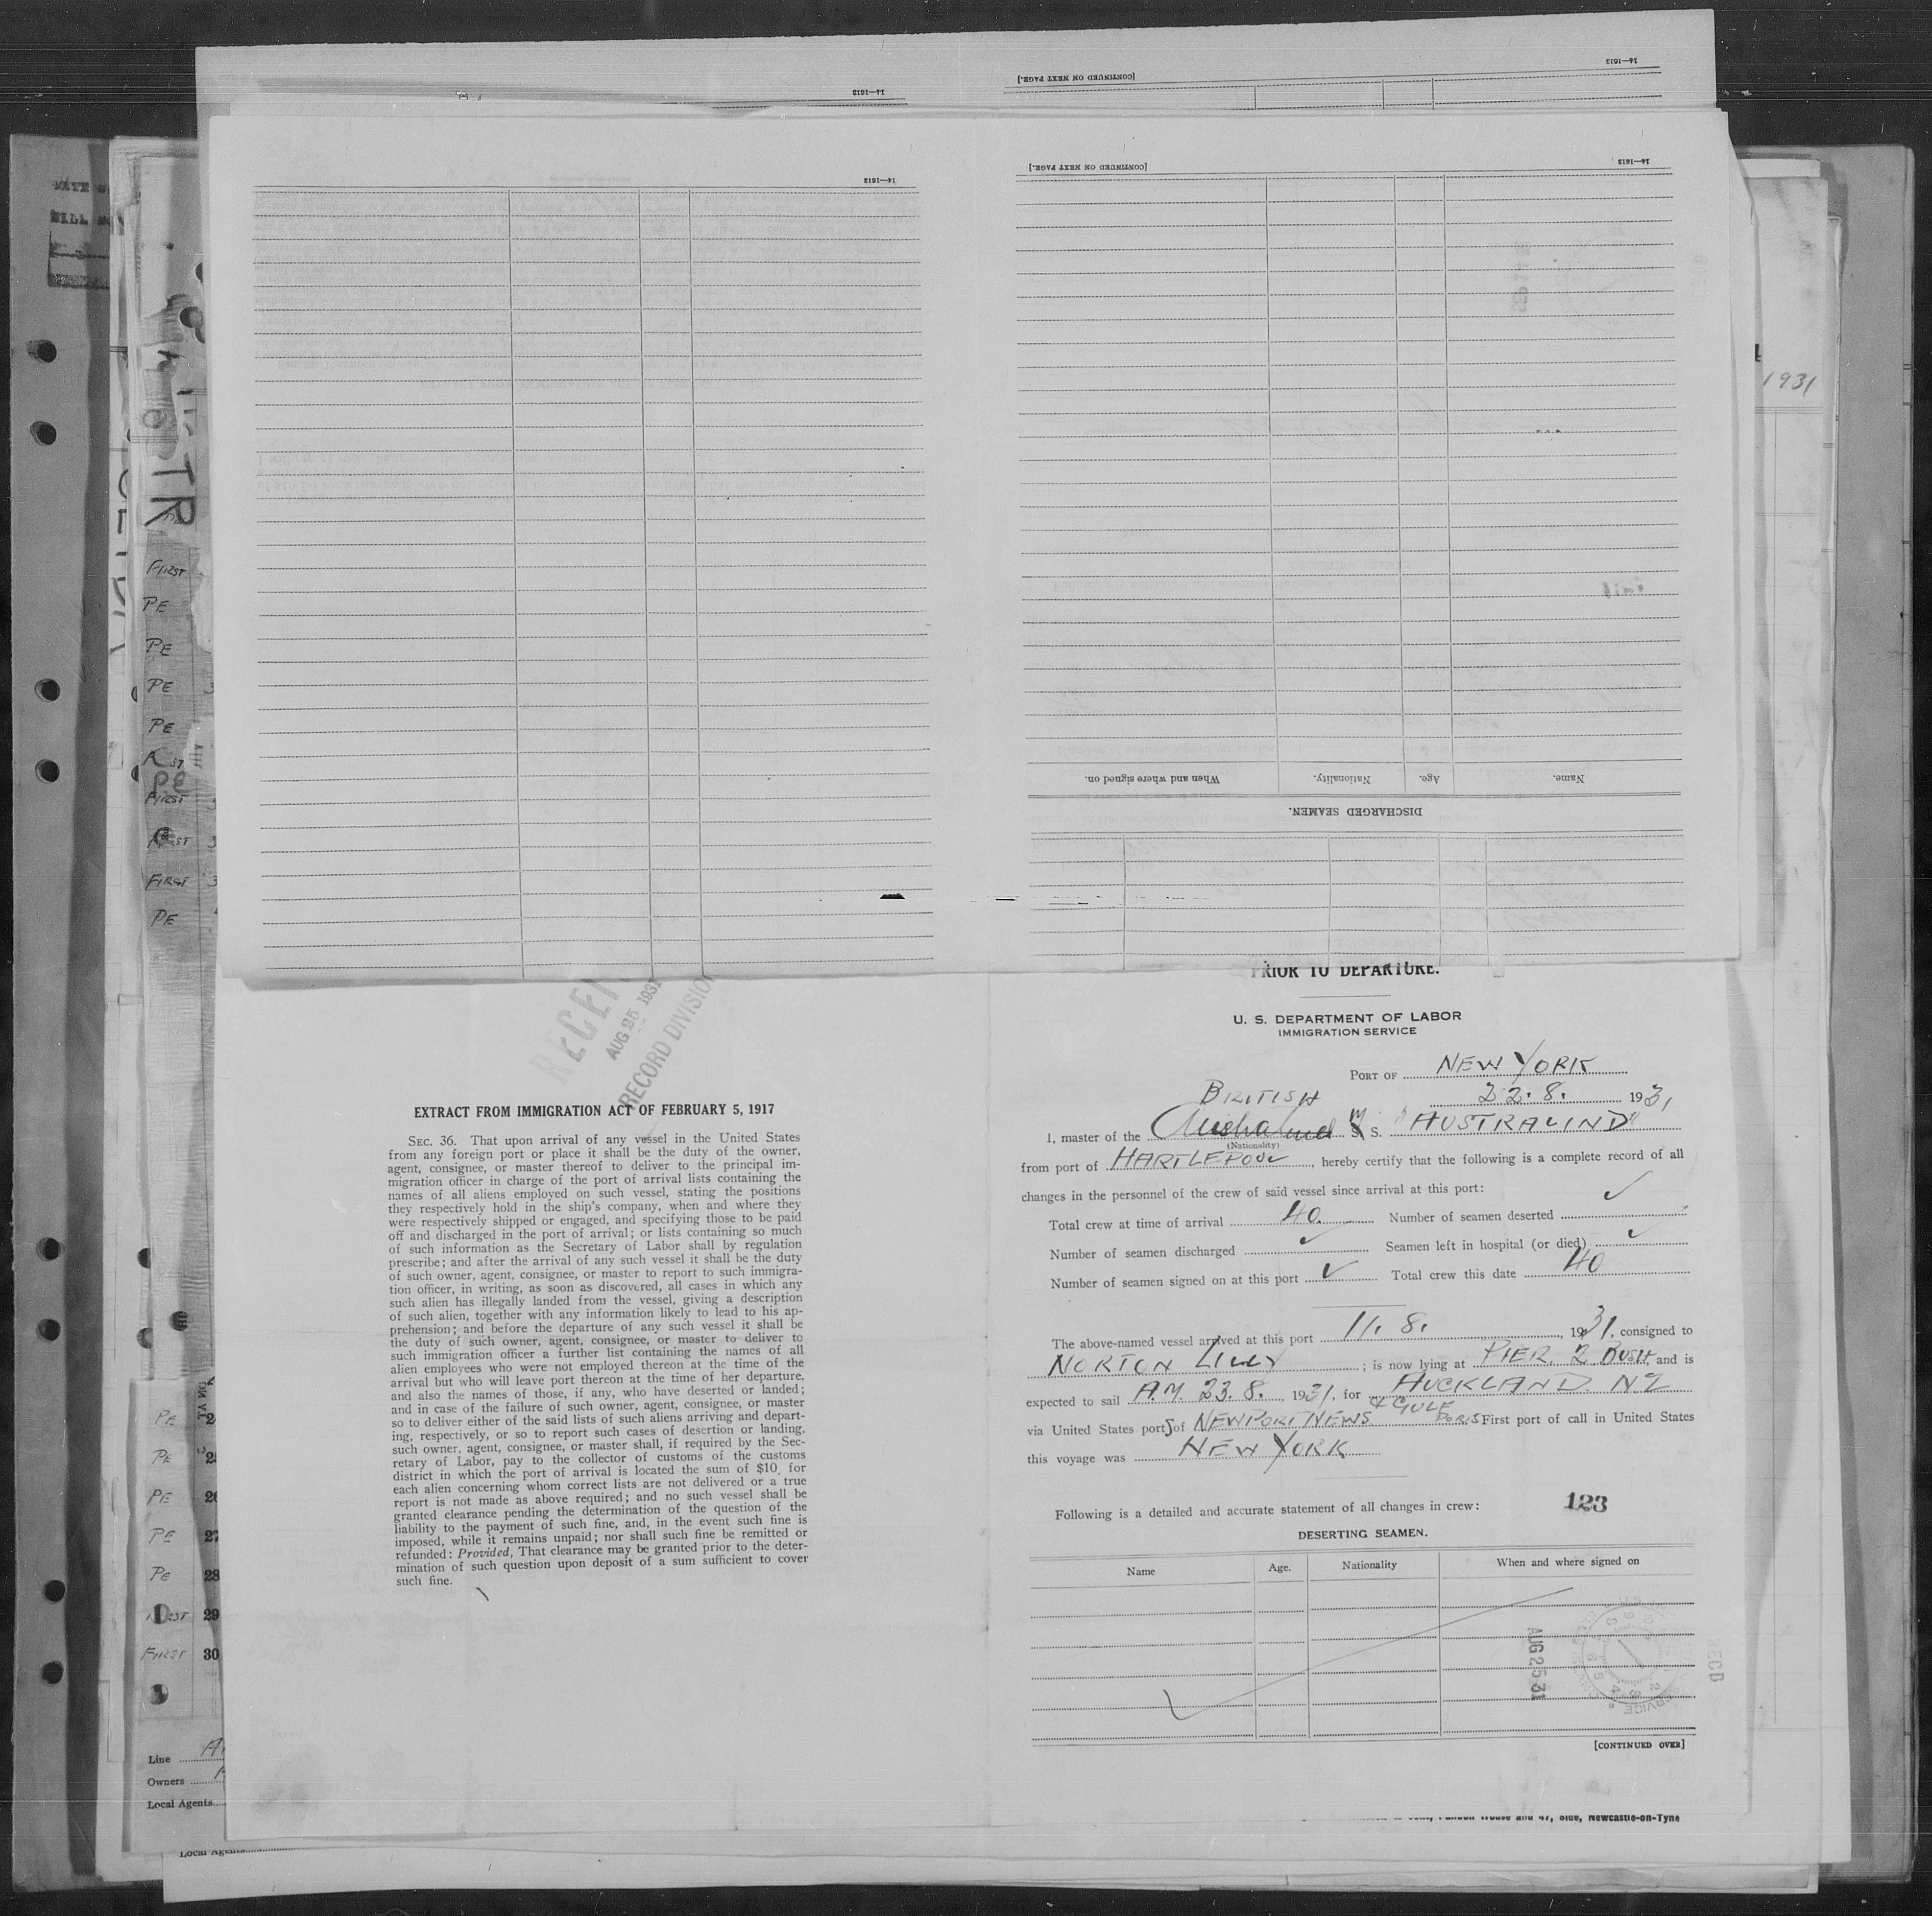 14—1613
[CONTINUED ON NEXT PAGE.]
14—1613
14—1613
[CONTINUED ON NEXT PAGE.]
14—1613
1931
FIRST
PE
PE
PE
PE
PE
FIRST
FIRST
PE
Name.
Age.
Nationality.
When and where signed on.
DISCHARGED SEAMEN.
AUG 25 1931
RECORD DIVISION
EXTRACT FROM IMMIGRATION ACT OF FEBRUARY 5, 1917
SEC. 36. That upon arrival of any vessel in the United States
from any foreign port or place it shall be the duty of the owner,
agent, consignee, or master thereof to deliver to the principal im-
migration officer in charge of the port of arrival lists containing the
names of all aliens employed on such vessel, stating the positions
they respectively hold in the ship's company, when and where they
were respectively shipped or engaged, and specifying those to be paid
off and discharged in the port of arrival; or lists containing so much
of such information as the Secretary of Labor shall by regulation
prescribe; and after the arrival of any such vessel it shall be the duty
of such owner, agent, consignee, or master to report to such immigra-
tion officer, in writing, as soon as discovered, all cases in which any
such alien has illegally landed from the vessel, giving a description
of such alien, together with any information likely to lead to his ap-
prehension; and before the departure of any such vessel it shall be
the duty of such owner, agent, consignee, or master to deliver to
such immigration officer a further list containing the names of all
alien employees who were not employed thereon at the time of the
arrival but who will leave port thereon at the time of her departure,
and also the names of those, if any, who have deserted or landed;
and in case of the failure of such owner, agent, consignee, or master
so to deliver either of the said lists of such aliens arriving and depart-
ing, respectively, or so to report such cases of desertion or landing,
such owner, agent, consignee, or master shall, if required by the Sec-
retary of Labor, pay to the collector of customs of the customs
district in which the port of arrival is located the sum of $10 for
each alien concerning whom correct lists are not delivered or a true
report is not made as above required; and no such vessel shall be
granted clearance pending the determination of the question of the
liability to the payment of such fine, and, in the event such fine is
imposed, while it remains unpaid; nor shall such fine be remitted or
refunded: Provided, That clearance may be granted prior to the deter-
mination of such question upon deposit of a sum sufficient to cover
such fine.
PRIOR TO DEPARTURE.
U. S. DEPARTMENT OF LABOR
IMMIGRATION SERVICE
PORT OF NEW YORK
22.8. 1931
BRITISH
I, master of the M. S. "AUSTRALIND"
(Nationality)
from port of HARTLEPOOL, hereby certify that the following is a complete record of all
changes in the personnel of the crew of said vessel since arrival at this port:
Total crew at time of arrival 40. Number of seamen deserted ✓
Number of seamen discharged ✓ Seamen left in hospital (or died) ✓
Number of seamen signed on at this port ✓ Total crew this date 40
The above-named vessel arrived at this port 11. 8., 1931, consigned to
NORTON LILLY; is now lying at PIER. 2 BUSH and is
expected to sail A.M. 23. 8. 1931, for AUCKLAND. NZ
via United States ports of NEWPORT NEWS & GULF PORTS First port of call in United States
this voyage was NEW YORK
Following is a detailed and accurate statement of all changes in crew:
123
DESERTING SEAMEN.
Name Age. Nationality When and where signed on
AUG 25 31
RECD
[CONTINUED OVER]
PE
PE
PE
PE 27
PE 28
29
FIRST 30
Line
Owners
Local Agents
House and 47, Side, Newcastle-on-Tyne
Local Agents